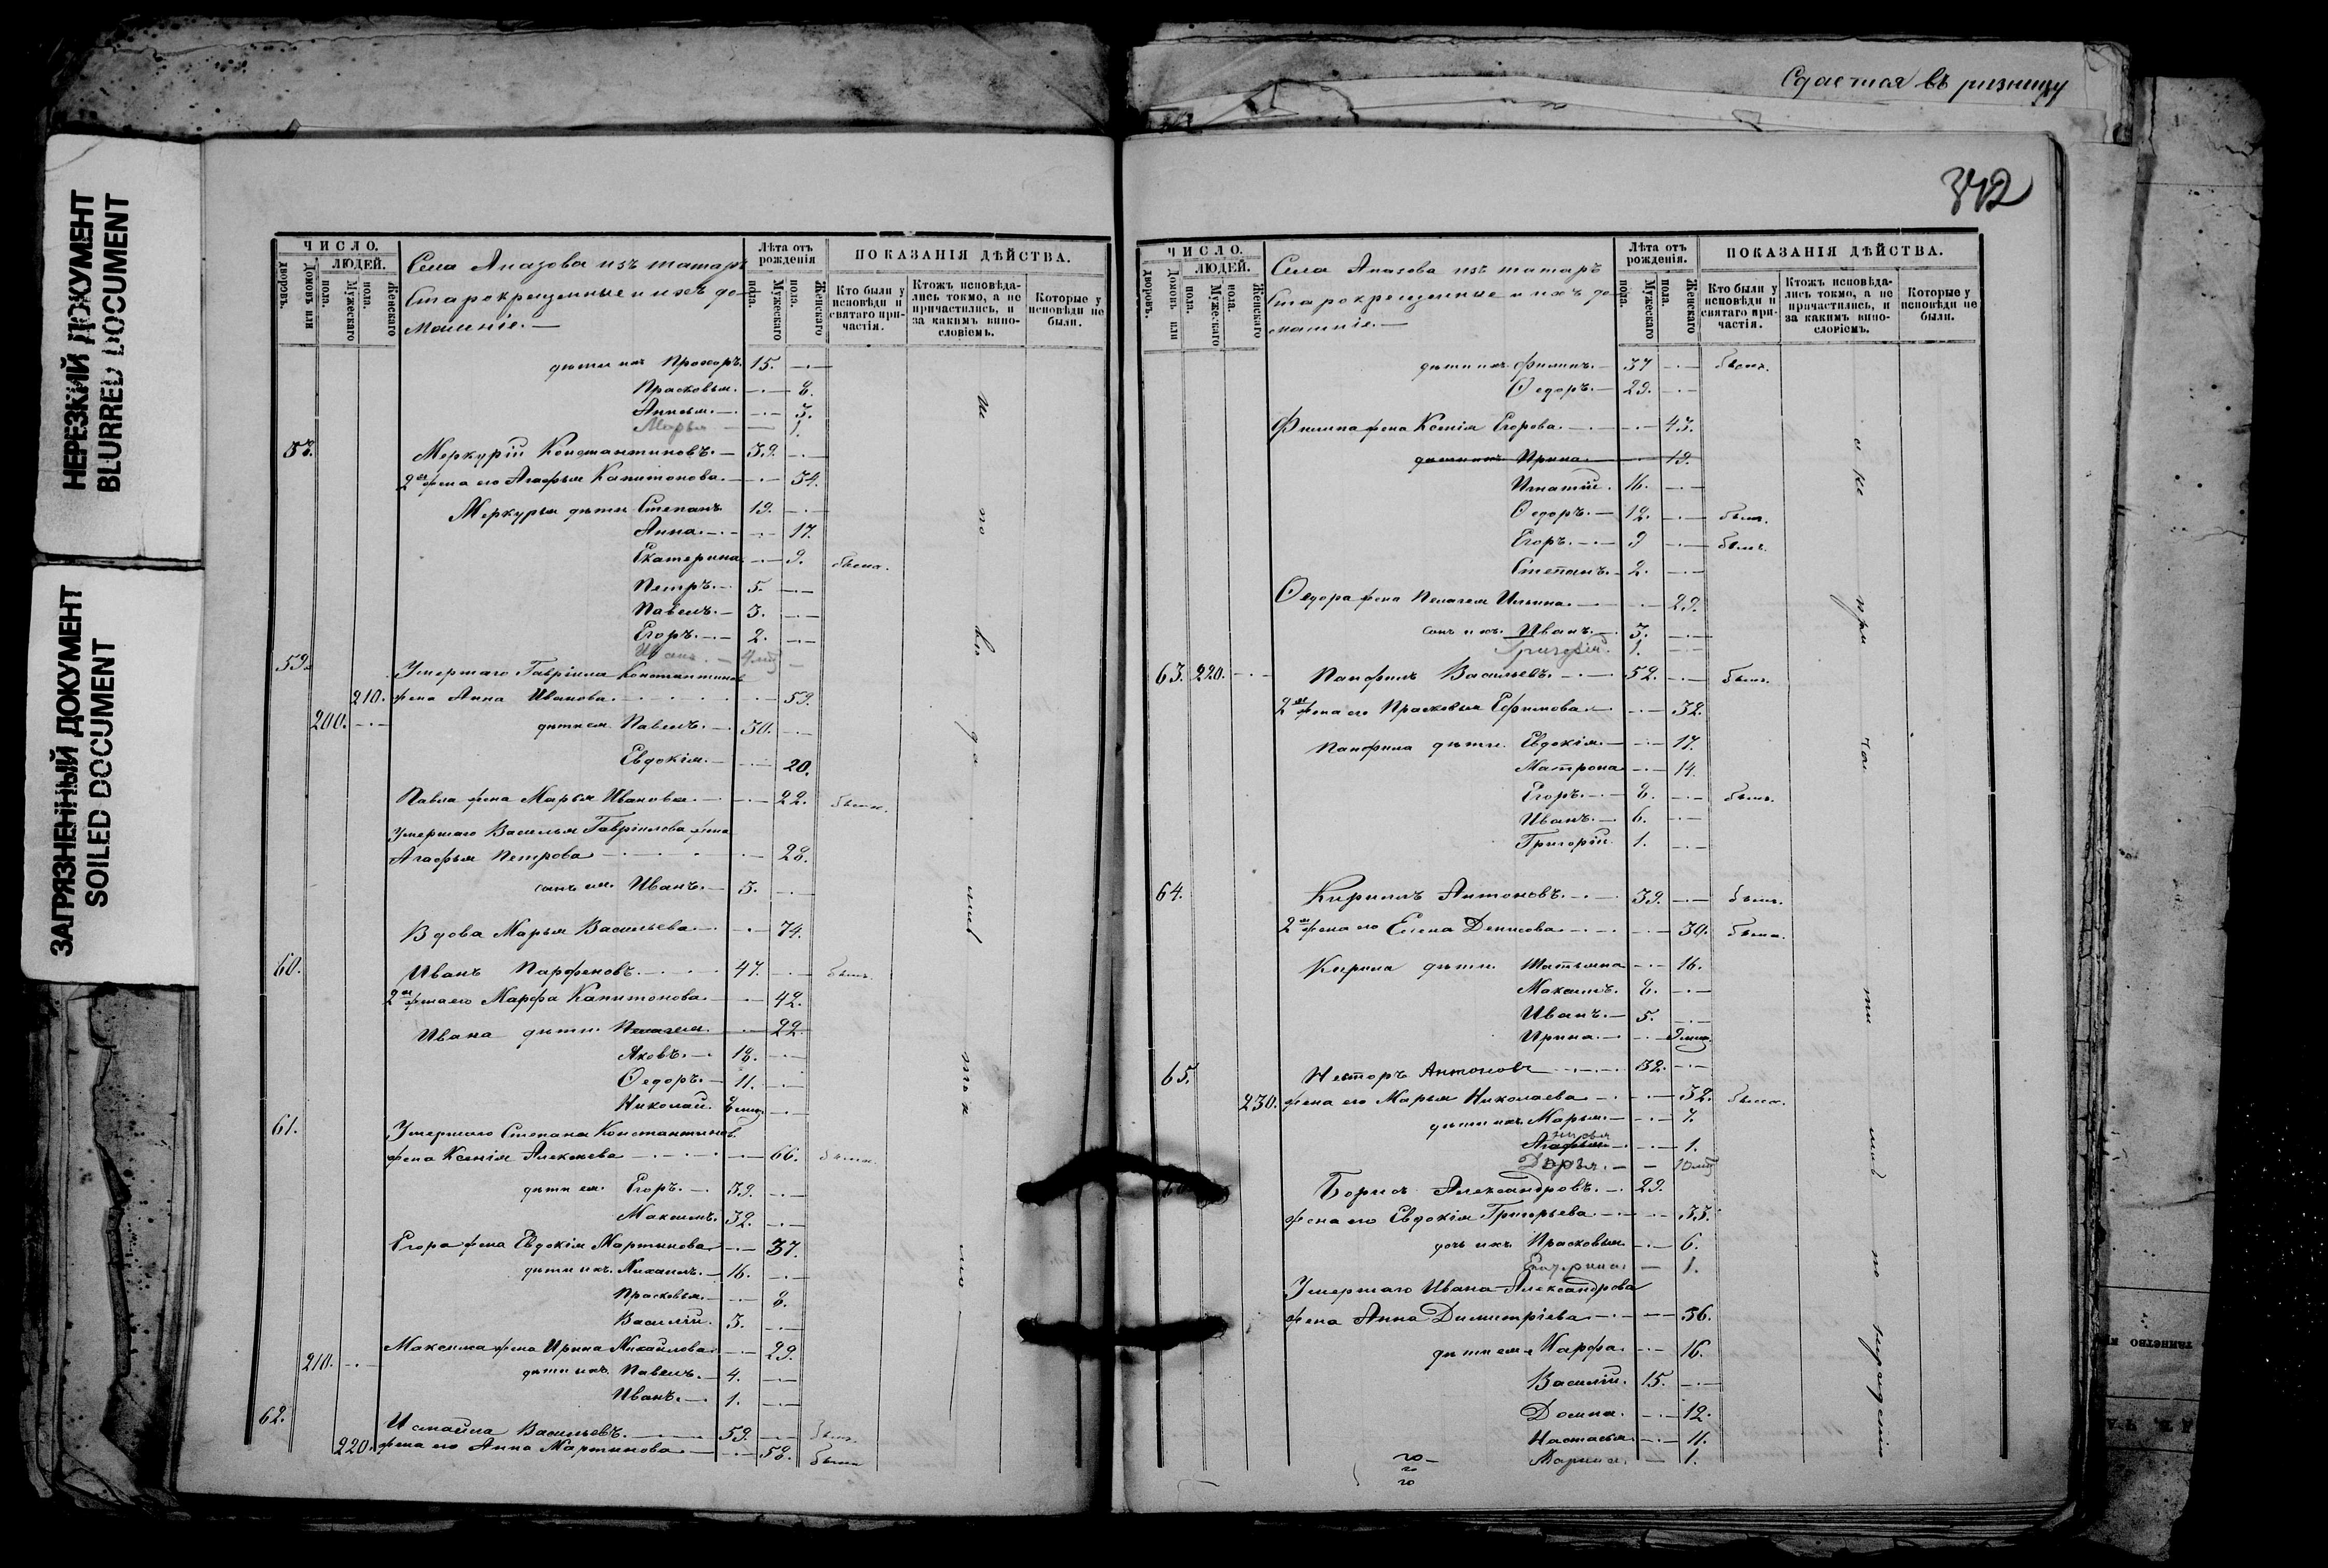 Сдается въ ризницу
НЕРЕЗКИЙ ДОКУМЕНТ
BLURRED DOCUMENT
ЗАГРЯЗНЕННЫЙ ДОКУМЕНТ
SOILED DOCUMENT
ЧИСЛО.
ЛЮДЕЙ.
Домовъ или дворовъ.
Мужескаго пола.
Женскаго пола.
Села Апазова изъ татаръ
Старокрещенные и ихъ до-
машніе.—
Лѣта отъ рожденія
Мужескаго пола.
Женскаго пола.
ПОКАЗАНІЯ ДѢЙСТВА.
Кто были у исповѣди и святаго причастія.
Ктожъ исповѣдались токмо, а не причастились, и за какимъ винословіемъ.
Которые у исповѣди не были.
дѣти ихъ Прохоръ. 15. —
Прасковья. — 8.
Анисья. — 3.
Марья — 1.
58. Меркурій Константиновъ. — 39. —
2ая жена его Агафья Капитонова. — 34.
Меркурья дѣти Степанъ 19. —
Анна. — 17.
Екатерина. — 9. была.
Петръ. — 5. —
Павелъ. — 3. —
Егоръ. — 2. —
59. Умершаго Гавріила Константинов
210. жена Анна Иванова. — 59.
200. — дѣти ея. Павелъ. — 30. —
Евдокія. — 20.
Павла жена Марья Иванова. — 22. была.
Умершаго Василья Гавріилова жена
Агафья Петрова — 28.
сынъ ея. Иванъ. — 3. —
Вдова Марья Васильева — 74.
60. Иванъ Парфеновъ. — 47. — былъ.
2ая жена его Марфа Капитонова. — 42.
Ивана дѣти. Пелагея. — 22.
Яковъ. — 18. —
Ѳедоръ. — 11. —
Николай. 8 мѣс. —
61. Умершаго Степана Константинов.
жена Ксенія Алексѣева — 66. была.
дѣти ея. Егоръ. — 39. —
Максимъ. 32. —
Егора жена Евдокія Мартынова — 37.
дѣти ихъ. Михаилъ. — 16. —
Прасковья. — 8.
Василій. 3. —
Максима жена Ирина Михайлова. — 29.
210. — дѣти ихъ. Павелъ. — 4. —
Иванъ. — 1. —
62. Исмаила Васильевъ. — 59. — былъ.
220. жена его Анна Мартынова — 58. была
342
ЧИСЛО.
ЛЮДЕЙ.
Домовъ или дворовъ.
Мужескаго пола.
Женскаго пола.
Села Апазова изъ татаръ
Старокрещенные и ихъ до-
машніе.—
Лѣта отъ рожденія.
Мужескаго пола.
Женскаго пола.
ПОКАЗАНІЯ ДѢЙСТВА.
Кто были у исповѣди и святаго причастія.
Ктожъ исповѣдались токмо, а не причастились, и за какимъ винословіемъ.
Которые у исповѣди не были.
дѣти ихъ Филипъ. — 37 — былъ.
Ѳедоръ. — 29. —
Филипа жена Ксенія Егорова. — 43.
дѣти ихъ Ирина — 19.
Игнатій. 16. —
Ѳедоръ. — 12. — былъ.
Егоръ. — 9 — былъ.
Степанъ. — 2. —
Ѳедора жена Пелагея Ильина. — 29.
сынъ ихъ. Иванъ. — 3. —
Григорій. 1. —
63. 220. — Панфилъ Васильевъ. — 52. — былъ.
2ая жена его Прасковья Ефимова — 32.
Панфила дѣти. Евдокія. — 17.
Матрона — 14.
Егоръ. — 8. — былъ.
Иванъ. — 6. —
Григорій. 1. —
64. Кирилъ Антоновъ. — 39. — былъ.
2ая жена его Елена Денисова — 30. была.
Кирила дѣти. Татьяна — 16.
Максимъ. 8. —
Иванъ. — 5. —
Ирина. —
65. Несторъ Антоновъ — 32. —
230. жена его Марья Николаева — 32. была.
дѣти ихъ. Марья. — 7.
Агафья — 1.
Дарья. —
Борисъ Александровъ. — 29.
жена его Евдокія Григорьева. — 33.
дочь ихъ. Прасковья. — 6.
Екатерина — 1.
Умершаго Ивана Александрова
жена Анна Димитріева — 56.
дѣти ея. Марфа. — 16.
Василій. 15. —
Домна. — 12.
Настасья. — 11.
Марина. — 1.